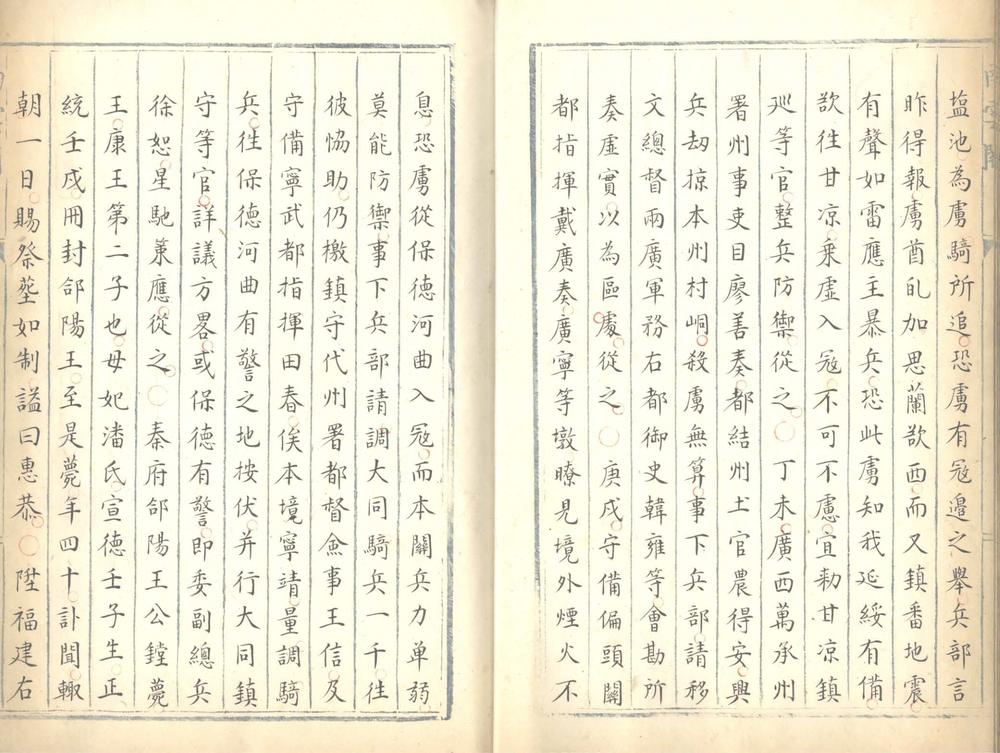 塩池為虜騎所追恐虜有冦邉之舉兵部言
昨得報虜酋癿加思蘭欲西而又鎮番地震
有聲如雷應主暴兵恐此虜知我延綏有備
欲徃甘凉乗虚入冦不可不慮宜勑甘凉鎮
廵等官整兵防禦從之○丁未廣西萬承州
署州事吏目廖善奏都結州土官農得安興
兵刼掠本州村峒殺虜無算事下兵部請移
文緫督兩廣軍務右都御史韓雍等會勘所
奏虚實以為區處從之○庚戌守備偏頭關
都指揮戴廣奏廣寧等墩瞭見境外煙火不
息恐虜從保德河曲入冦而本關兵力单弱
莫能防禦事下兵部請調大同騎兵一千徃
彼恊助仍檄鎮守代州署都督僉事王信及
守備寧武都指揮田春俟本境寧靖量調騎
兵徃保德河曲有警之地按伏并行大同鎮
守等官詳議方畧或保德有警即委副總兵
徐恕星馳策應從之○秦府郃陽王公鏜薨
王康王第二子也母妃潘氏宣德壬子生正
統壬戌冊封郃陽王至是薨年四十訃聞輟
朝一日賜祭塟如制謚曰惠恭○陞福建右